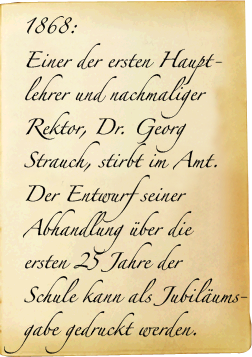 1868:
Einer der ersten Haupt-
lehrer und nachmaliger
Rektor, Dr. Georg
Strauch, stirbt im Amt.
Der Entwurf seiner
Abhandlung über die
ersten 25 Jahre der
Schule kann als Jubiläums-
gabe gedruckt werden.